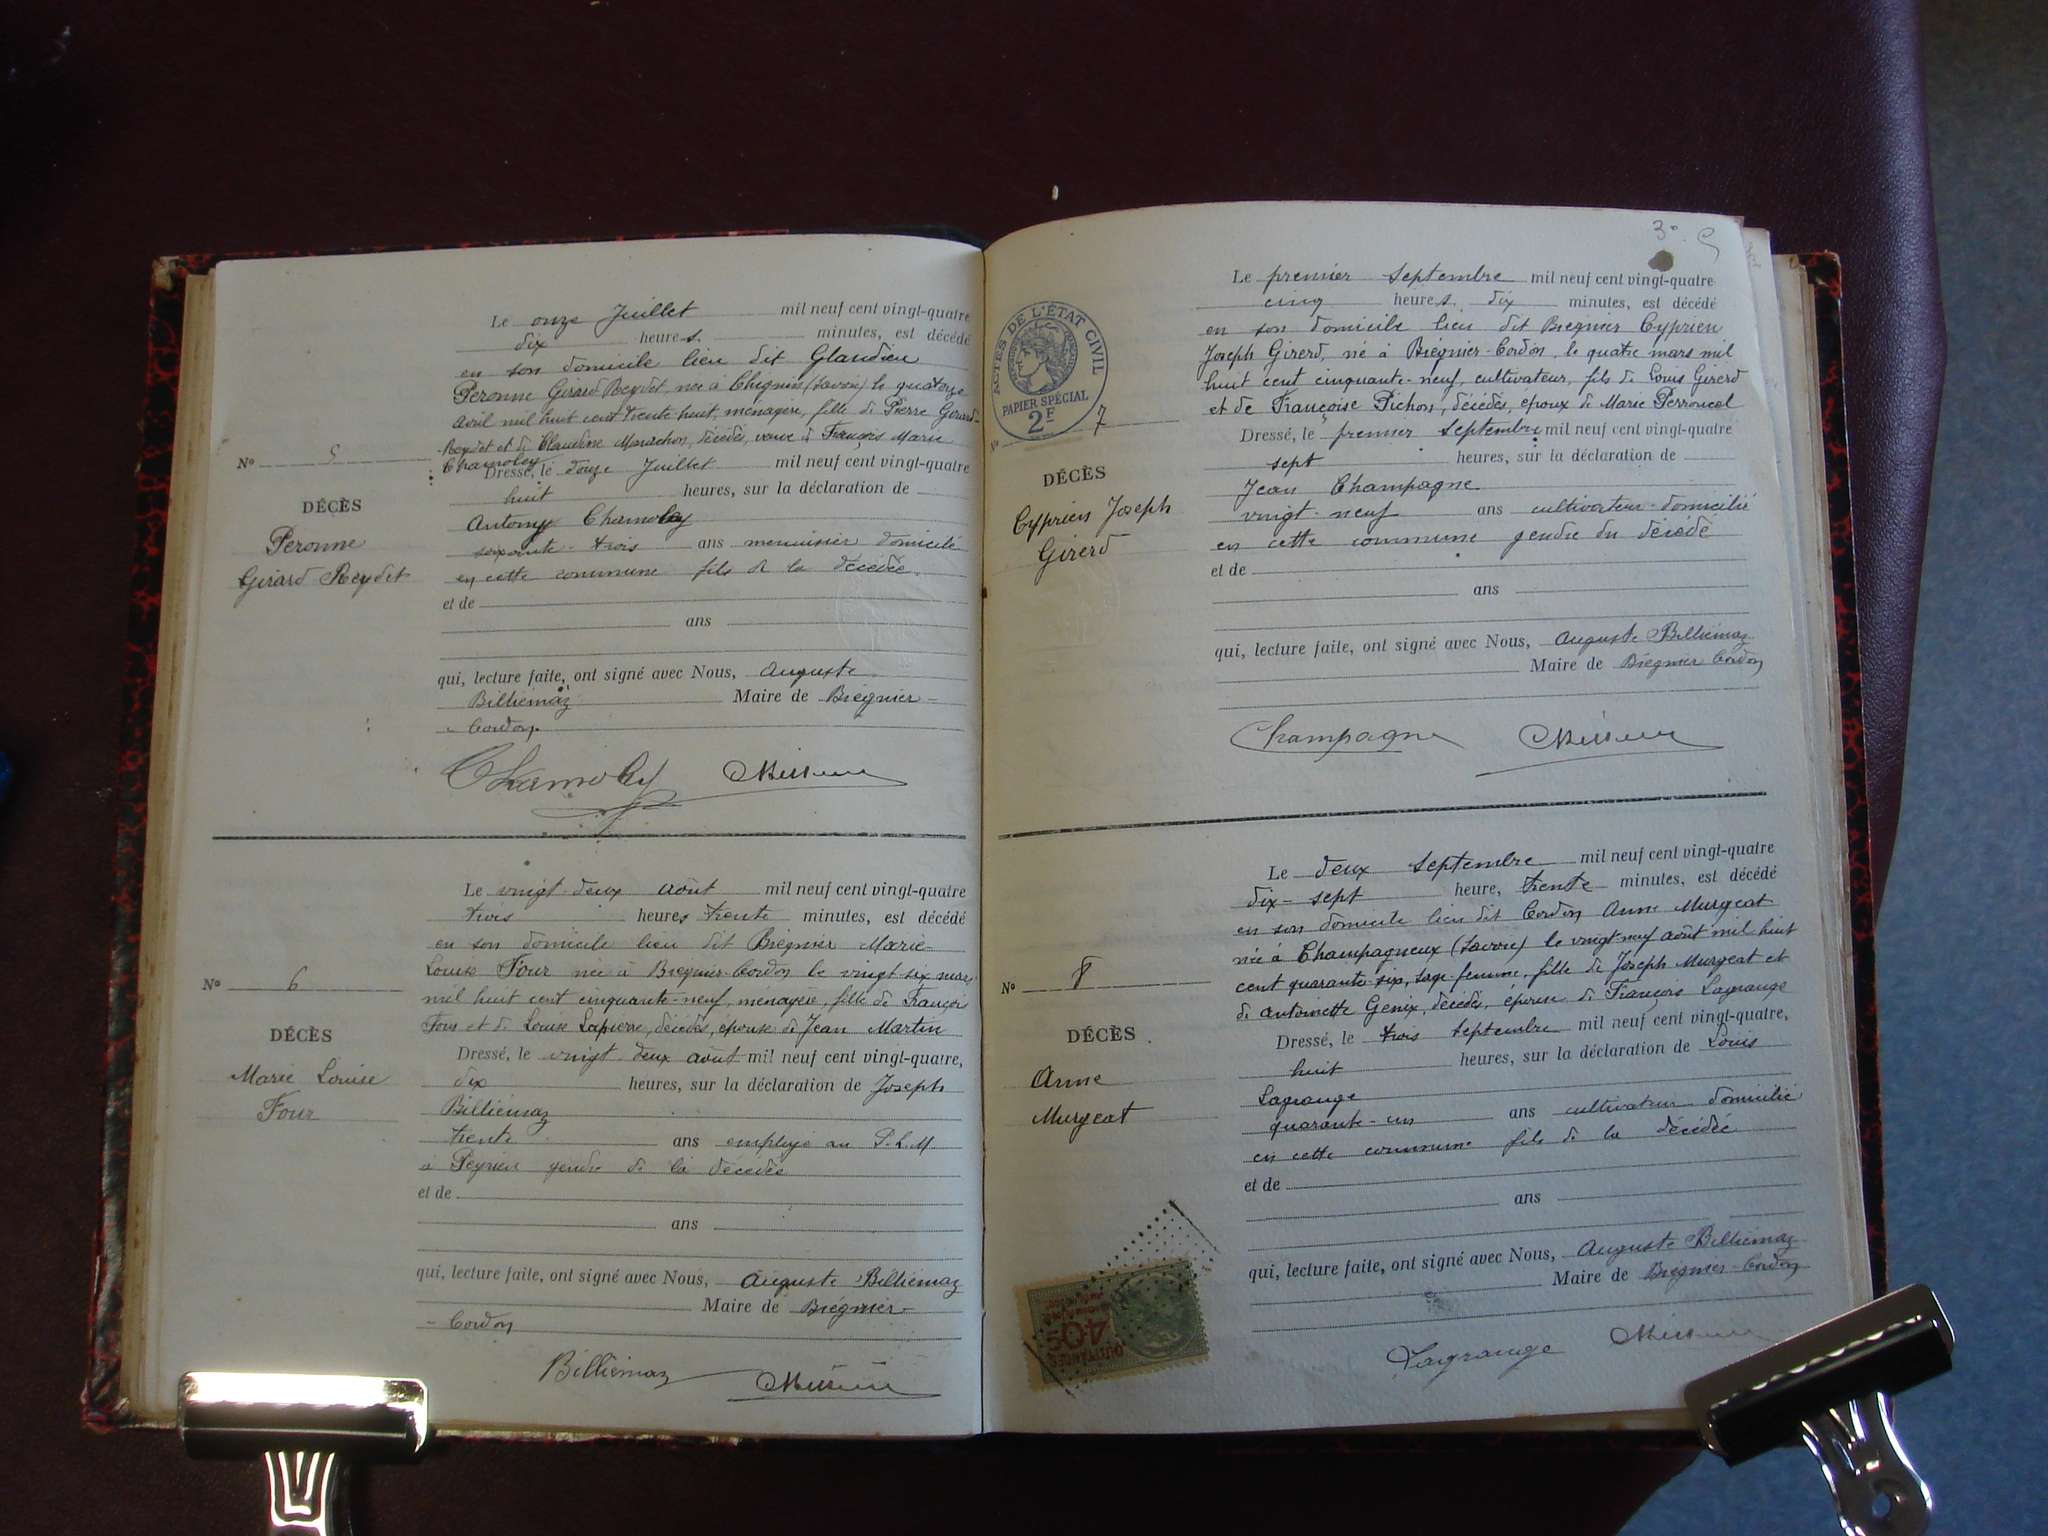 Le onze Juillet mil neuf cent vingt-quatre
dix heures minutes, est décédé
en son domicile lieu dit Glandieu
Peronne Girard Reydet, née à Chignin (Savoie) le quatorze
avril mil huit cent trente huit, ménagère, fille de Pierre Girard-
Reydet et de Claudine Marachon, décédés, veuve de François Marie
Chamoley
Nº 5
Dressé, le douze Juillet mil neuf cent vingt-quatre
huit heures, sur la déclaration de
DÉCÈS
Peronne
Girard Reydet
Antony Chamoley
soixante-trois ans menuisier domicilié
en cette commune fils de la décédée.
et de
ans
qui, lecture faite, ont signé avec Nous, Auguste
Billiémaz Maire de Brégnier-
-Cordon
Chamoley
Le vingt-deux août mil neuf cent vingt-quatre
trois heures trente minutes, est décédé
en son domicile lieu dit Brégnier Marie
Louise Four née à Brégnier-Cordon le vingt-six mars
mil huit cent cinquante-neuf, ménagère, fille de François
Four et de Louise Lapierre, décédés, épouse de Jean Martin
Nº 6
DÉCÈS
Marie Louise
Four
Dressé, le vingt-deux août mil neuf cent vingt-quatre,
dix heures, sur la déclaration de Joseph
Billiémaz
trente ans employé au P.L.M.
à Peyrieu gendre de la décédée
et de
ans
qui, lecture faite, ont signé avec Nous, Auguste Billiémaz
Maire de Brégnier-
-Cordon
Billiémaz
3º 5
ACTES DE L'ÉTAT CIVIL
PAPIER SPÉCIAL
2F
Le premier septembre mil neuf cent vingt-quatre
cinq heures dix minutes, est décédé
en son domicile lieu dit Brégnier Cyprien
Joseph Girerd, né à Brégnier-Cordon, le quatre mars mil
huit cent cinquante-neuf, cultivateur, fils de Louis Girerd
et de Françoise Pichon, décédés, époux de Marie Perroncel
Nº 7
DÉCÈS
Cyprien Joseph
Girerd
Dressé, le premier septembre mil neuf cent vingt-quatre
sept heures, sur la déclaration de
Jean Champagne
vingt-neuf ans cultivateur domicilié
en cette commune gendre du décédé
et de
ans
qui, lecture faite, ont signé avec Nous, Auguste Billiémaz
Maire de Brégnier Cordon
Champagne
Le deux septembre mil neuf cent vingt-quatre
dix-sept heure, trente minutes, est décédé
en son domicile lieu dit Cordon Anne Murgeat
née à Champagneux (Savoie) le vingt neuf août mil huit
cent quarante-six, sage-femme, fille de Joseph Murgeat et
de Antoinette Genix, décédés, épouse de François Lagrange
Nº 8
DÉCÈS
Anne
Murgeat
Dressé, le trois septembre mil neuf cent vingt-quatre,
huit heures, sur la déclaration de Louis
Lagrange
quarante-un ans cultivateur domicilié
en cette commune fils de la décédée
et de
ans
qui, lecture faite, ont signé avec Nous, Auguste Billiémaz
Maire de Brégnier-Cordon
Lagrange
QUITTANCES
40c